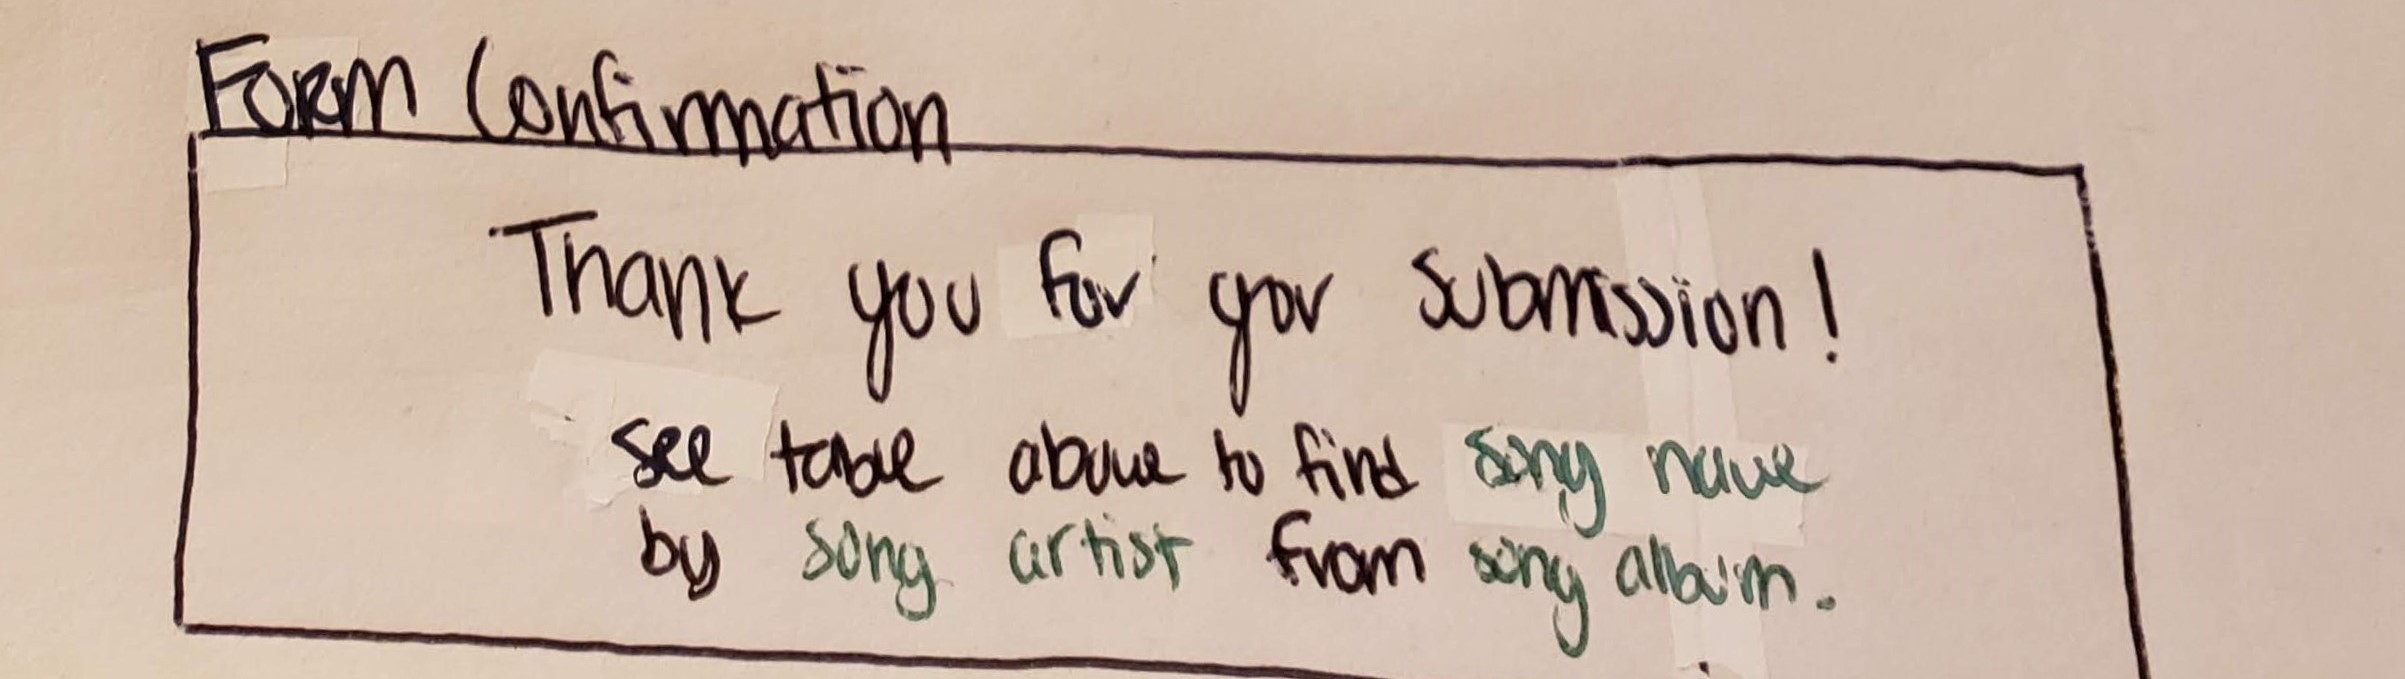 Form Confirmation
Thank you for your submission!
see table above to find song name
by song artist from song album.